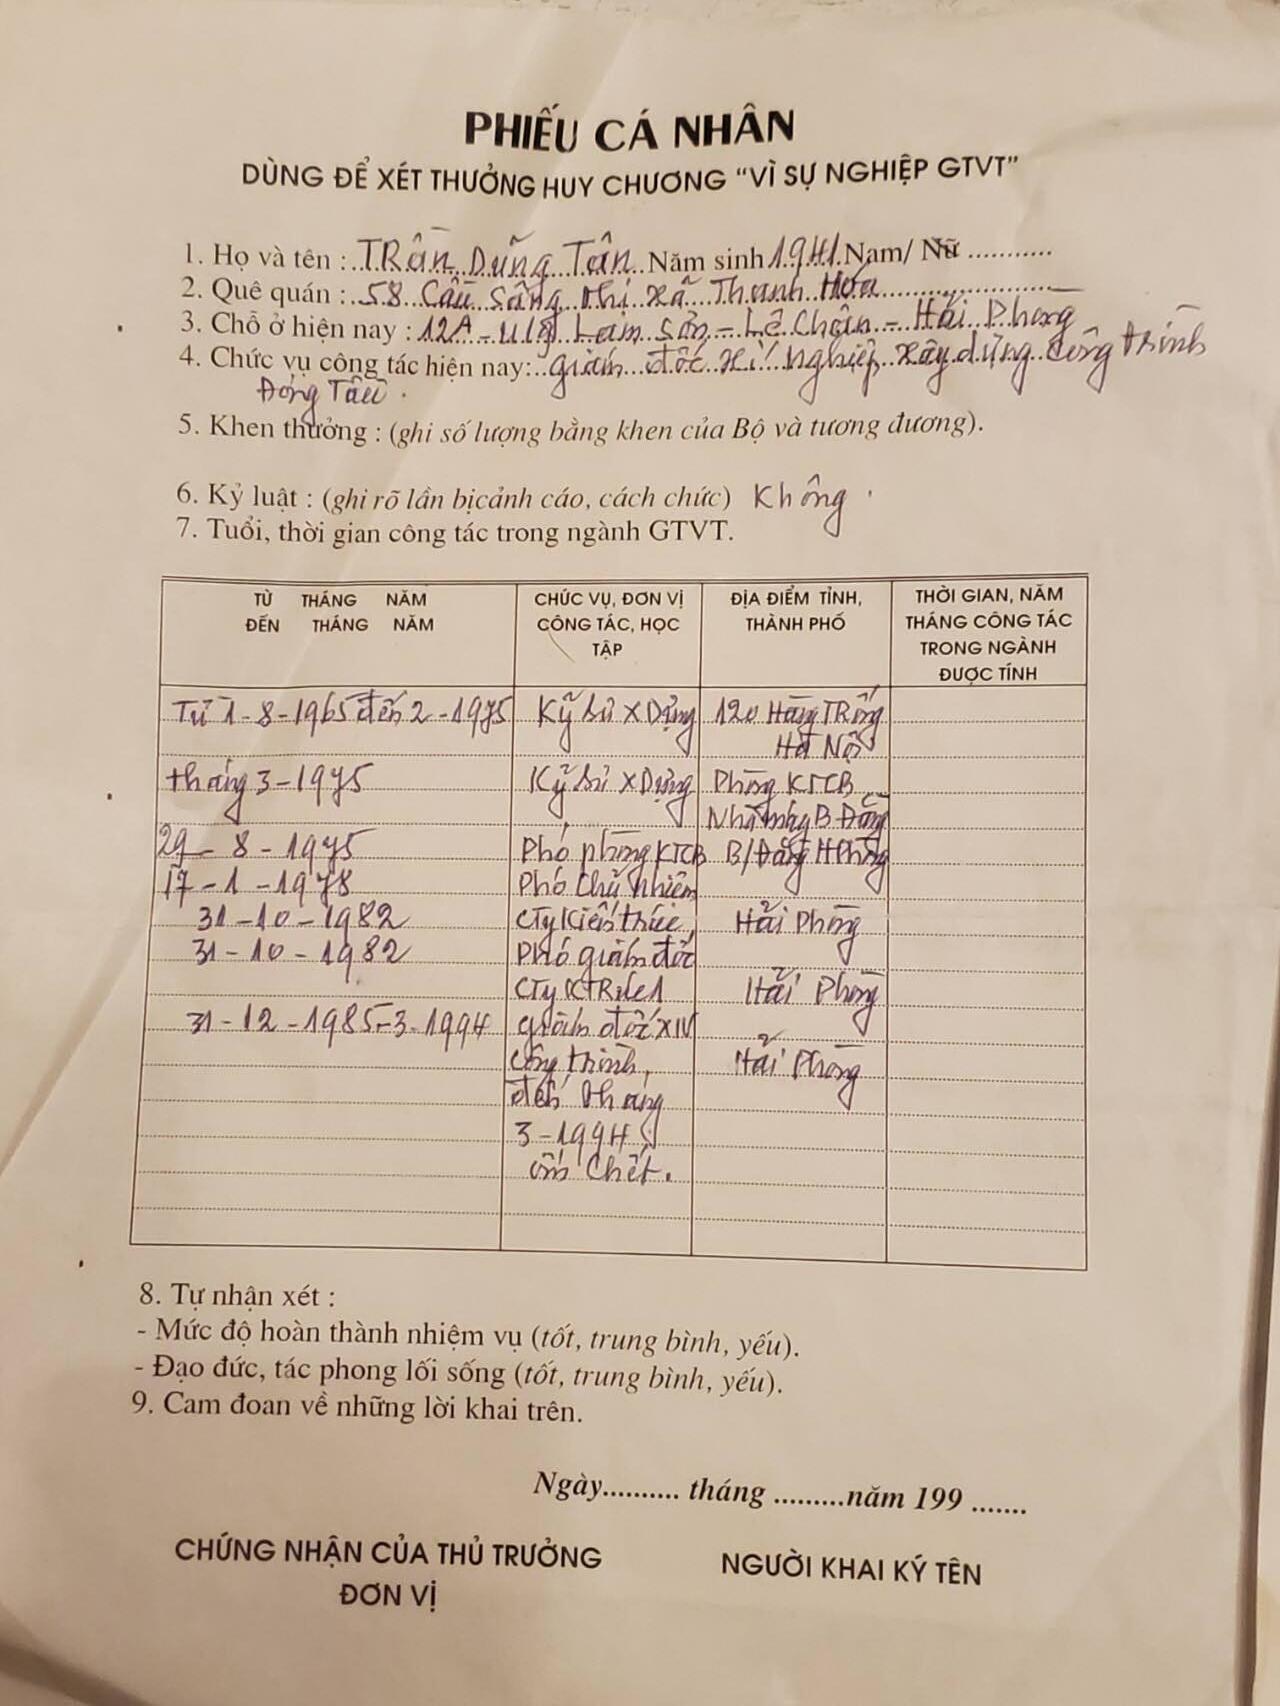 PHIẾU CÁ NHÂN
DÙNG ĐỂ XÉT THƯỞNG HUY CHƯƠNG "VÌ SỰ NGHIỆP GTVT"
1. Họ và tên : Trần Dũng Tân Năm sinh 1941 Nam/ Nữ ............
2. Quê quán : 58 Cầu Sâng thị xã Thanh Hóa
3. Chỗ ở hiện nay : 12A - Lam Sơn - Lê Chân - Hải Phòng
4. Chức vụ công tác hiện nay: giám đốc xí nghiệp xây dựng công trình
Đóng Tàu .
5. Khen thưởng : (ghi số lượng bằng khen của Bộ và tương đương).
6. Kỷ luật : (ghi rõ lần bịcảnh cáo, cách chức) Không .
7. Tuổi, thời gian công tác trong ngành GTVT.
TỪ THÁNG NĂM
ĐẾN THÁNG NĂM
CHỨC VỤ, ĐƠN VỊ
CÔNG TÁC, HỌC
TẬP
ĐỊA ĐIỂM TỈNH,
THÀNH PHỐ
THỜI GIAN, NĂM
THÁNG CÔNG TÁC
TRONG NGÀNH
ĐƯỢC TÍNH
Từ 1-8-1965 đến 2-1975 Kỹ sư X Dựng 120 Hàng Trống
Hà Nội
tháng 3-1975 Kỹ sư X Dựng Phòng KTCB
Nhà máy B Đằng
29-8-1975 Phó phòng KTCB B/Đằng H Phòng
17-1-1978 Phó Chủ nhiệm
31-10-1982 CTy Kiến trúc, Hải Phòng
31-10-1982 Phó giám đốc
CTy Hải Phòng
31-12-1985-3-1994 giám đốc XN
Công trình, Hải Phòng
đến tháng
3-1994
ốm chết.
8. Tự nhận xét :
- Mức độ hoàn thành nhiệm vụ (tốt, trung bình, yếu).
- Đạo đức, tác phong lối sống (tốt, trung bình, yếu).
9. Cam đoan về những lời khai trên.
Ngày.......... tháng .........năm 199 .......
CHỨNG NHẬN CỦA THỦ TRƯỞNG NGƯỜI KHAI KÝ TÊN
ĐƠN VỊ